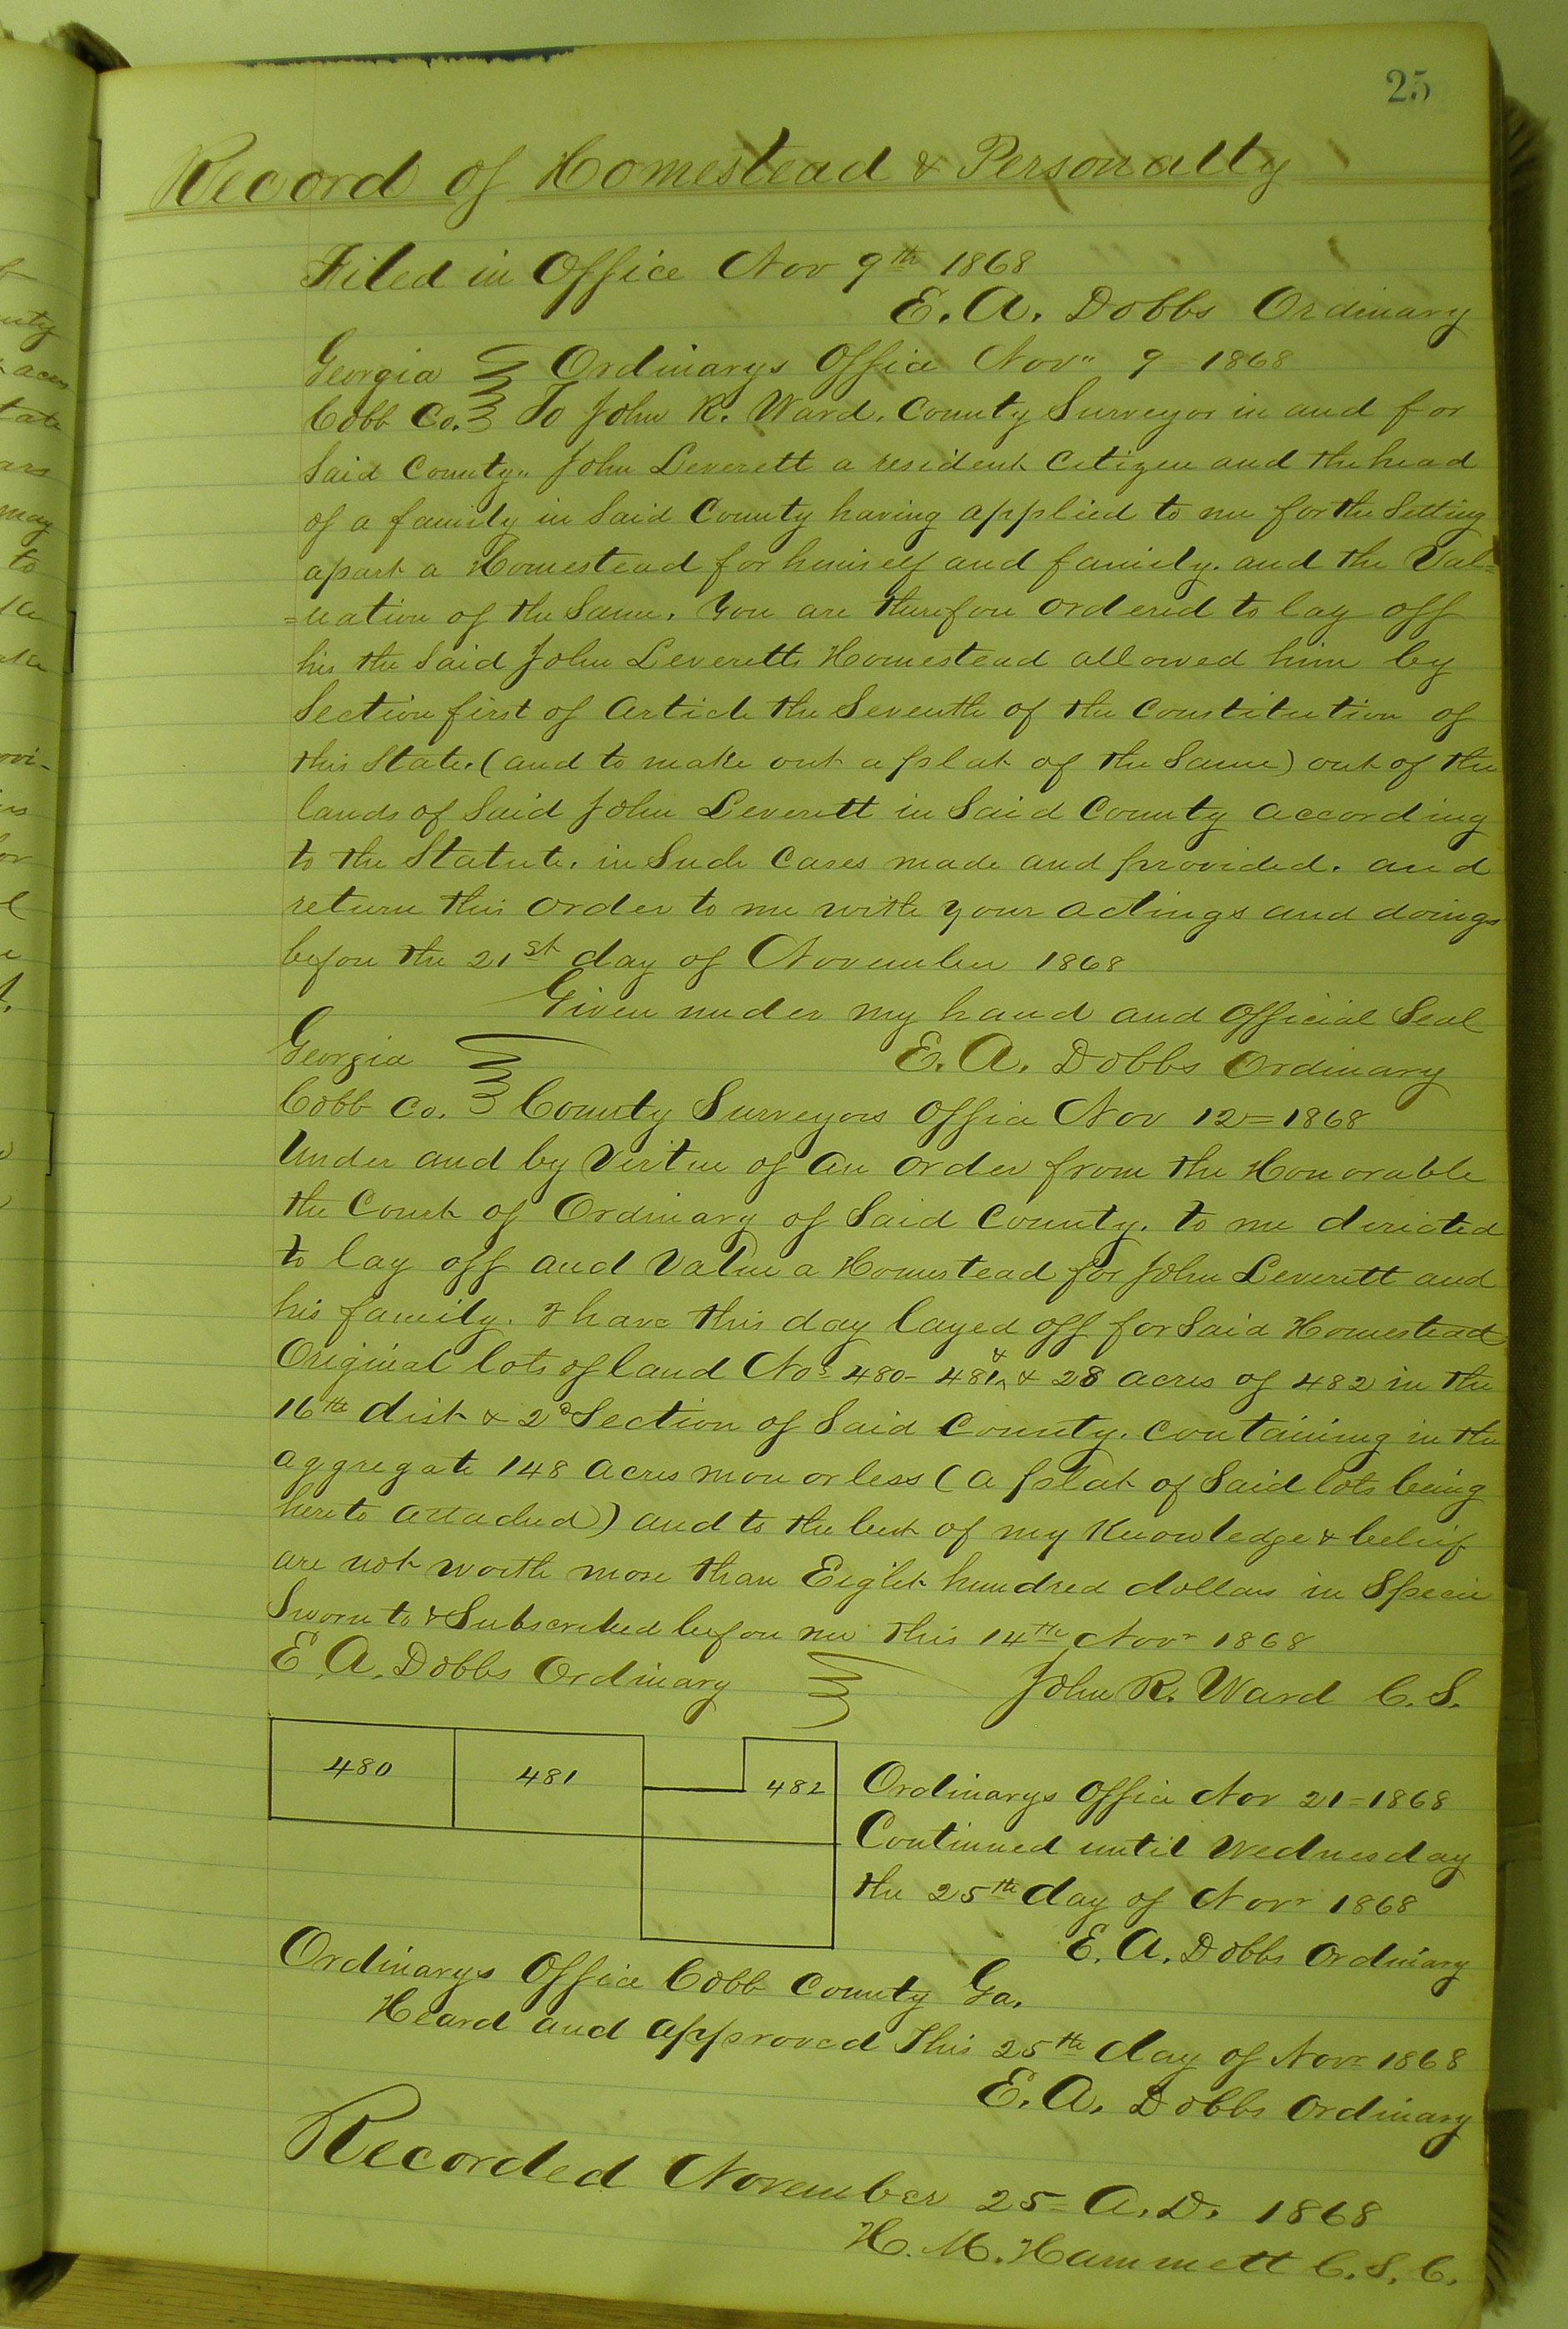 25
Record of Homestead & Personalty
Filed in Office Nov 9th 1868
E. A. Dobbs Ordinary
Georgia Ordinarys Office Nov" 9 1868
Cobb Co. To John R. Ward, County Surveyor in and for
Said County" John Leverett a resident Citizen and the head
of a family in Said County having applied to me for the Setting
apart a Homestead for himself and family. and the Val=
=uation of the Same. You are therefore ordered to lay off
his the Said John Leveretts Homestead allowed him by
Section first of Article the Seventh of the Constitution of
this State. (and to make out a plat of the Same) out of the
lands of Said John Leverett in Said County according
to the Statute. in Such Cases made and provided. and
return this order to me with your actings and doings
before the 21st day of November 1868
Given under my hand and Official Seal
Georgia E. A. Dobbs Ordinary
Cobb Co. County Surveyors Office Nov 12=1868
Under and by Virtue of an order from the Honorable
the Court of Ordinary of Said County. to me directed
to lay off and Value a Homestead for John Leverett and
his family. I have this day layed off for Said Homestead
Original lots of land Nos 480- 481 & & 28 acres of 482 in the
16th dist & 2d Section of Said County. Containing in the
aggregate 148 acres more or less (a plat of Said lots being
hereto attached) and to the best of my Knowledge & belief
are not worth more than Eight hundred dollars in Specie
Sworn to & Subscribed before me this 14th Novr 1868
E A. Dobbs Ordinary John R. Ward C. S.
480 481 482
Ordinarys Office Nov 21=1868
Continued until Wednesday
the 25th day of Novr 1868
E. A. Dobbs Ordinary
Ordinarys Office Cobb County Ga.
Heard and approved This 25th day of Novr 1868
E. A. Dobbs Ordinary
Recorded November 25= A. D. 1868
H. M. Hammett C. S. C.